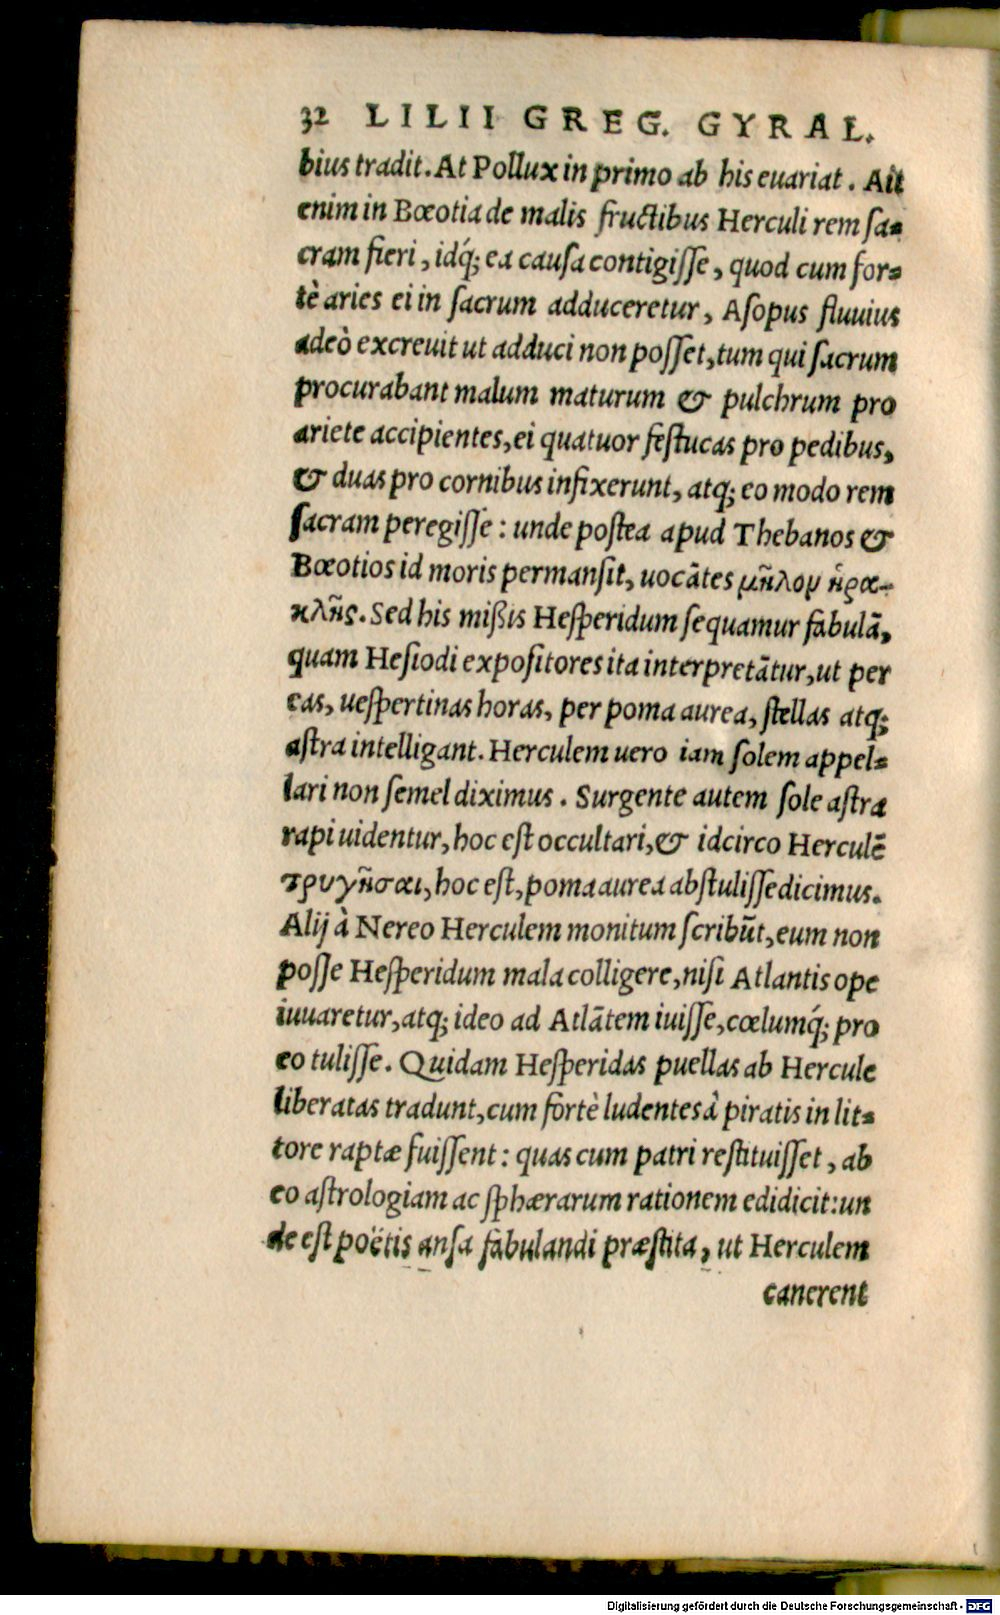 32 LILII GREG. GYRAL.
bius tradit. At Pollux in primo ab his euariat. Ait
enim in Bœotia de malis fructibus Herculi rem sa-
cram fieri, idq́; ea causa contigisse, quod cum for-
tè aries ei in sacrum adduceretur, Asopus fluuius
adeò excreuit ut adduci non posset, tum qui sacrum
procurabant malum maturum & pulchrum pro
ariete accipientes, ei quatuor festucas pro pedibus,
& duas pro cornibus infixerunt, atq; eo modo rem
sacram peregisse: unde postea apud Thebanos &
Bœotios id moris permansit, uocātes μῆλου ἡρα-
κλῆς. Sed his mißis Hesperidum sequamur fabulā,
quam Hesiodi expositores ita interpretātur, ut per
eas, uespertinas horas, per poma aurea, stellas atq;
astra intelligant. Herculem uero iam solem appel-
lari non semel diximus. Surgente autem sole astra
rapi uidentur, hoc est occultari, & idcirco Herculē
τρυγῆσαι, hoc est, poma aurea abstulisse dicimus.
Alij à Nereo Herculem monitum scribūt, eum non
posse Hesperidum mala colligere, nisi Atlantis ope
iuuaretur, atq; ideo ad Atlātem iuisse, cœlumq́; pro
eo tulisse. Quidam Hesperidas puellas ab Hercule
liberatas tradunt, cum fortè ludentes à piratis in lit-
tore raptæ fuissent: quas cum patri restituisset, ab
eo astrologiam ac sphærarum rationem edidicit: un
de est poëtis ansa fabulandi præstita, ut Herculem
canerent
Digitalisierung gefördert durch die Deutsche Forschungsgemeinschaft - DFG